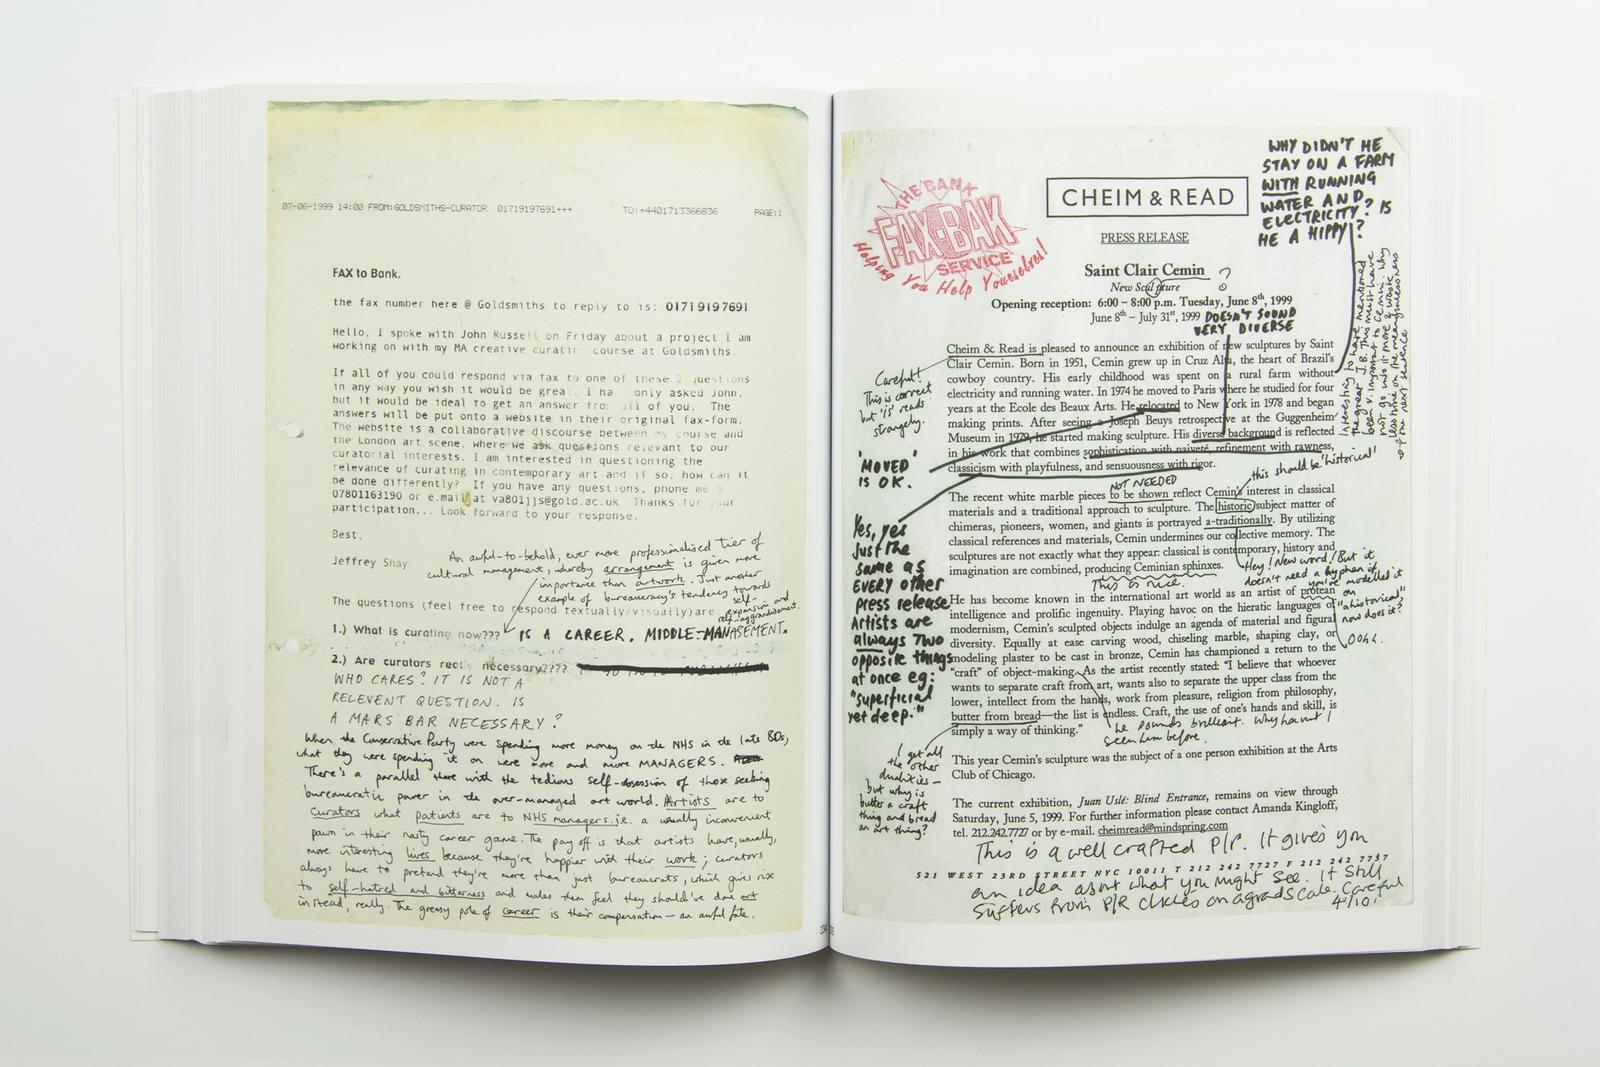 07-06-1999 14:00 FROM:GOLDSMITHS-CURATOR 01719197691+++ TO:+4401713366836 PAGE:1
FAX to Bank.
the fax number here @ Goldsmiths to reply to is: 01719197691
Hello. I spoke with John Russell on Friday about a project I am
working on with my MA creative curating course at Goldsmiths.
If all of you could respond via fax to one of these 2 questions
in any way you wish it would be great. I ha only asked John,
but it would be ideal to get an answer from all of you. The
answers will be put onto a website in their original fax-form.
The website is a collaborative discourse between my course and
the London art scene, where we ask questions relevant to our
curatorial interests. I am interested in questioning the
relevance of curating in contemporary art and if so, how can it
be done differently? If you have any questions, phone me @
07801163190 or e.mail at va801jjs@gold.ac.uk Thanks for your
participation... Look forward to your response.
Best,
Jeffrey Shay
An awful-to-behold, ever more professionalised tier of
cultural management, whereby arrangement is given more
importance than artwork. Just another
example of bureaucracy's tendency towards
self-expansion and
self-aggrandisement.
The questions (feel free to respond textually/visually) are:
1.) What is curating now??? IS A CAREER. MIDDLE-MANAGEMENT.
2.) Are curators really necessary????
WHO CARES? IT IS NOT A
RELEVENT QUESTION. IS
A MARS BAR NECESSARY?
When the Conservative Party were spending more money on the NHS in the late 80s,
what they were spending it on were more and more MANAGERS.
There's a parallel there with the tedious self-obsession of those seeking
bureaucratic power in the over-managed art world. Artists are to
curators what patients are to NHS managers. i.e. a usually inconvenient
pawn in their nasty career game. The pay off is that artists have, usually,
more interesting lives because they're happier with their work; curators
always have to pretend they're more than just bureaucrats, which gives rise
to self-hatred and bitterness and makes them feel they should've done art
instead, really. The greasy pole of career is their compensation – an awful fate.
THE BANK
FAX-BAK
SERVICE
Helping You Help Yourselves!
CHEIM & READ
WHY DIDN'T HE
STAY ON A FARM
WITH RUNNING
WATER AND
ELECTRICITY? IS
HE A HIPPY?
PRESS RELEASE
Saint Clair Cemin ?
New Sculpture
Opening reception: 6:00 – 8:00 p.m. Tuesday, June 8th, 1999
June 8th – July 31st, 1999
DOESN'T SOUND
VERY DIVERSE
Cheim & Read is pleased to announce an exhibition of new sculptures by Saint
Clair Cemin. Born in 1951, Cemin grew up in Cruz Alta, the heart of Brazil's
cowboy country. His early childhood was spent on a rural farm without
electricity and running water. In 1974 he moved to Paris where he studied for four
years at the Ecole des Beaux Arts. He relocated to New York in 1978 and began
making prints. After seeing a Joseph Beuys retrospective at the Guggenheim
Museum in 1979, he started making sculpture. His diverse background is reflected
in his work that combines sophistication with naiveté, refinement with rawness,
classicism with playfulness, and sensuousness with rigor.
Careful!
This is correct
but 'is' reads
strangely.
'MOVED'
IS OK.
Interesting to have mentioned
the great J.B. This must have
been v. important to Cemin. Why
not go into it more & waste
less time on the meaninglessness
of the next sentence
this should be 'historical'
NOT NEEDED
The recent white marble pieces to be shown reflect Cemin's interest in classical
materials and a traditional approach to sculpture. The historic subject matter of
chimeras, pioneers, women, and giants is portrayed a-traditionally. By utilizing
classical references and materials, Cemin undermines our collective memory. The
sculptures are not exactly what they appear: classical is contemporary, history and
imagination are combined, producing Ceminian sphinxes.
This is nice.
Hey! New word! But it
doesn't need a hyphen if
you've modelled it
on
"ahistorical"
now does it?
Yes, yes
Just the
same as
EVERY other
press release
Artists are
always TWO
opposite things
at once eg:
"superficial
yet deep."
He has become known in the international art world as an artist of protean
intelligence and prolific ingenuity. Playing havoc on the hieratic languages of
modernism, Cemin's sculpted objects indulge an agenda of material and figural
diversity. Equally at ease carving wood, chiseling marble, shaping clay, or
modeling plaster to be cast in bronze, Cemin has championed a return to the
"craft" of object-making. As the artist recently stated: "I believe that whoever
wants to separate craft from art, wants also to separate the upper class from the
lower, intellect from the hands, work from pleasure, religion from philosophy,
butter from bread—the list is endless. Craft, the use of one's hands and skill, is
simply a way of thinking."
Oohh.
he sounds brilliant. Why haven't I
seen him before.
I get all
the other
dualities –
but why is
butter a craft
thing and bread
an art thing?
This year Cemin's sculpture was the subject of a one person exhibition at the Arts
Club of Chicago.
The current exhibition, Juan Uslé: Blind Entrance, remains on view through
Saturday, June 5, 1999. For further information please contact Amanda Kingloff,
tel. 212.242.7727 or by e-mail. cheimread@mindspring.com
This is a well crafted P/R. It gives you
521 WEST 23RD STREET NYC 10011 T 212 242 7727 F 212 242 7737
an idea about what you might see. It still
suffers from P/R cliches on a grand scale. Careful
4/10!